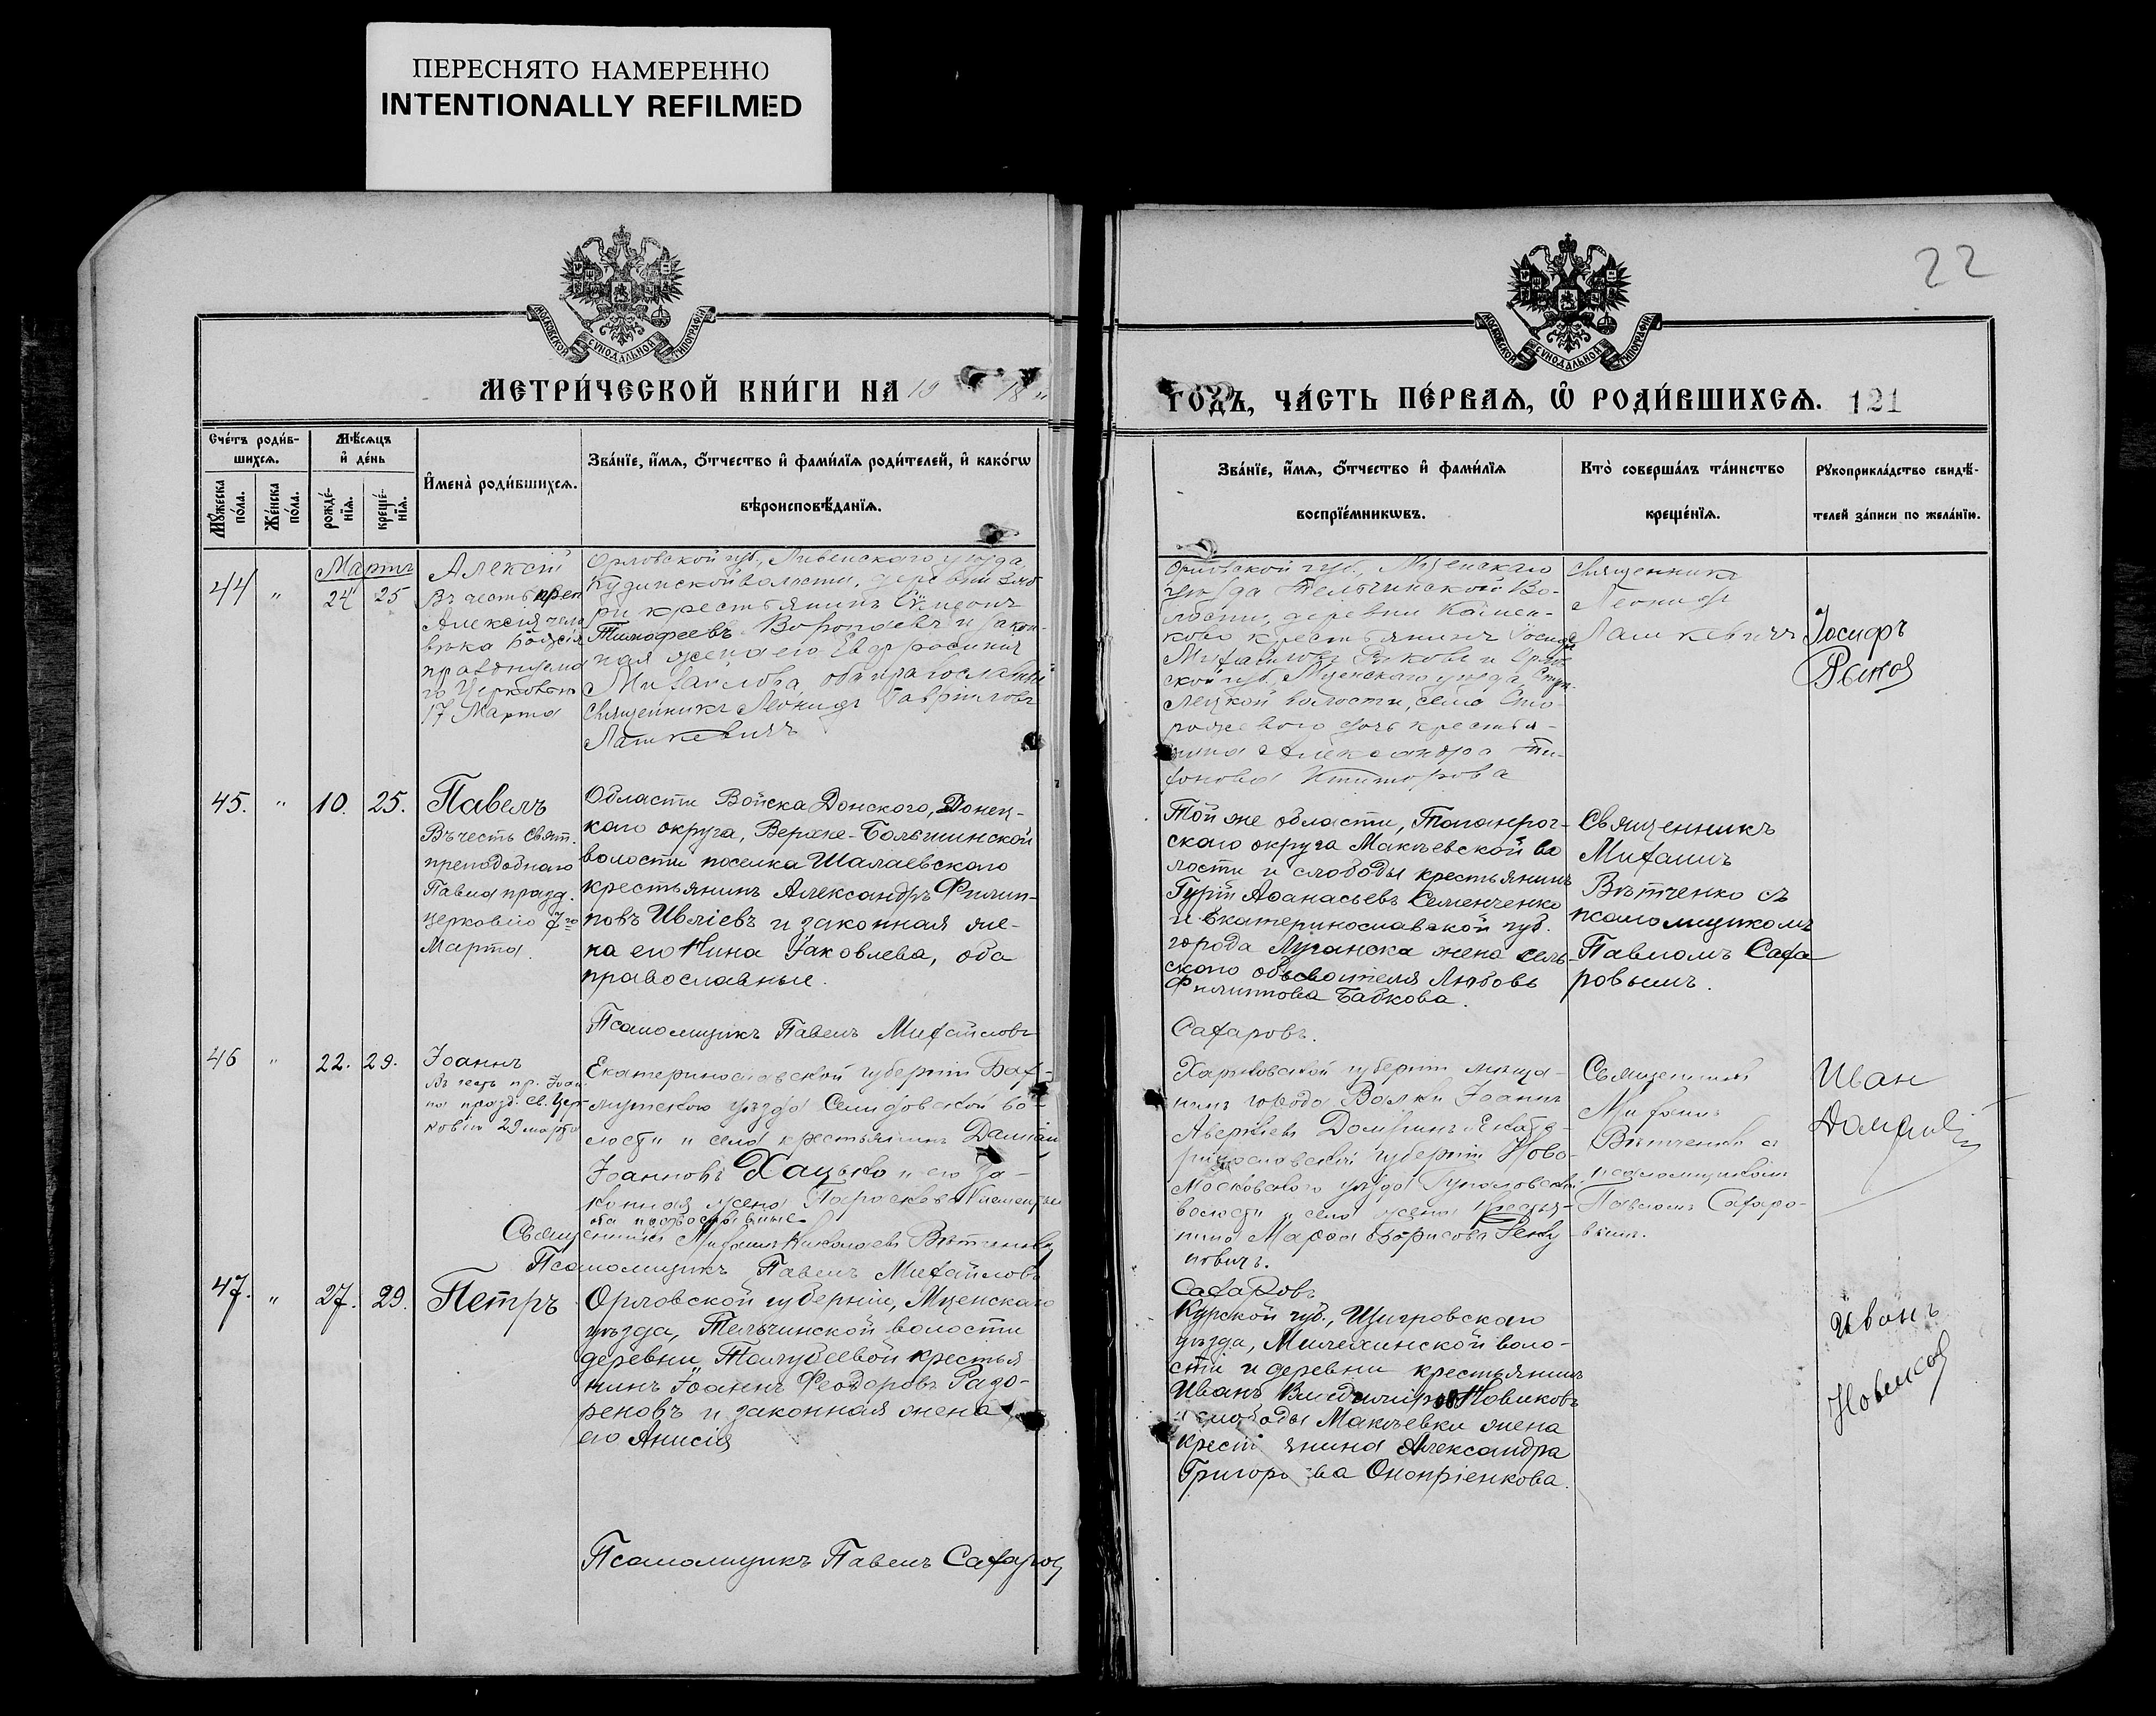 ПЕРЕСНЯТО НАМЕРЕННО
INTENTIONALLY REFILMED
22
МОСКОВСКОЙ СУНОДАЛЬНОЙ ТИПОГРАФІИ
МОСКОВСКОЙ СУНОДАЛЬНОЙ ТИПОГРАФІИ
МЕТРИ́ЧЕСКОЙ КНИ́ГИ НА 19 18
ГОДЪ, ЧА́СТЬ ПЕ́РВАѦ, Ѡ РОДИ́ВШИХСѦ. 121
Сче́тъ роди́в-
шихсѧ.
Мѣ́сѧцъ
и де́нь
Мꙋ́жеска
по́ла.
Же́нска
по́ла.
рожде́-
нїѧ.
креще́-
нїѧ.
Имена̀ роди́вшихсѧ.
Зва́нїе, и́мѧ, о́тчество и фами́лїѧ роди́телей, и како́гѡ
вѣроисповѣ́данїѧ.
Зва́нїе, и́мѧ, о́тчество и фами́лїѧ
воспрїе́мникѡвъ.
Кто̀ соверша́лъ та́инство
креще́нїѧ.
Рꙋкоприкла́дство свидѣ́-
телей за́писи по жела́нїю.
Мартъ
44 " 24 25
Алексій
Въ честь преп
Алексія чело
вѣка Божія
17 Марта
Орловской губ., Ливенскаго уѣзда,
волости, деревни
крестьянинъ Симеонъ
Тимофеевъ Воропаевъ и закон-
ная жена его Евфросинія
Михайлова, оба православные
Священникъ Леонидъ Гавріиловъ
Лашкевичъ
Орловской губ., Мценскаго
уѣзда Тельчинской Во-
лости, деревни Камен-
кого крестьянинъ Іосифъ
Михайловъ Рыковъ и Орлов
ской губ. Мценскаго уѣзда,
лецкой волости, села Сто-
рожевого дочь крестья-
нина Александра
Священникъ
Леонидъ
Лашкевичъ
Іосифъ
Рыков
45. " 10. 25.
Павелъ
Въ честь Свят.
преподобнаго
Павла празд.
церковію 7го
Марта.
Области Войска Донского, Донец-
каго округа, Верхне-Большинской
волости поселка Шалаевскаго
крестьянинъ Александръ Филип-
повъ Ивлiевъ и законная же-
на его Нина Іаковлева, оба
православные.
Псаломщикъ Павелъ Михайловъ
Той же области, Таганрог-
скаго округа Макѣевской во
лости и слободы крестьянинъ
Гурій Аѳанасьевъ Семенченко
и Екатеринославской губ.
города Луганска жена сель-
скаго обывателя Любовь
Филиппова Бабкова.
Сахаровъ.
Священникъ
Михаилъ
Вѣтченко съ
псаломщикомъ
Павломъ Саха
ровымъ.
46 " 22. 29.
Іоаннъ
Въ честь пр. Іоан
на празд. Св. Цер
ковію 29 марта
Екатеринославской губерніи Бах-
мутскаго уѣзда Селидовской во-
лости и села крестьянинъ Даміанъ
Іоанновъ Хацько и его за-
конная жена Параскева
оба православные
Священникъ Михаилъ Николаевъ Вѣтченко
Псаломщикъ Павелъ Михайловъ
Харьковской губерніи мѣща-
нинъ города Валки Іоаннъ
Аверкіевъ Екате-
ринославской губерніи Ново-
московскаго уѣзда
волости и села жена крестья-
нина Марѳа Борисова
Сахаровъ
Священникъ
Михаилъ
Вѣтченко съ
псаломщикомъ
Павломъ Сахаро-
вымъ.
Иван
47. " 27. 29.
Петръ
Орловской губерніи, Мценскаго
уѣзда, Тельчинской волости
деревни крестья
нинъ Іоаннъ Феодоровъ
и законная жена
его Анисія
Псаломщикъ Павелъ Сахаров
Курской губ., Щигровскаго
уѣзда, Мелехинской воло-
сти и деревни крестьянинъ
Иванъ Новиковъ
и слободы Макѣевки жена
крестьянина Александра
Григорьева Оноприенкова.
Иванъ
Новиков